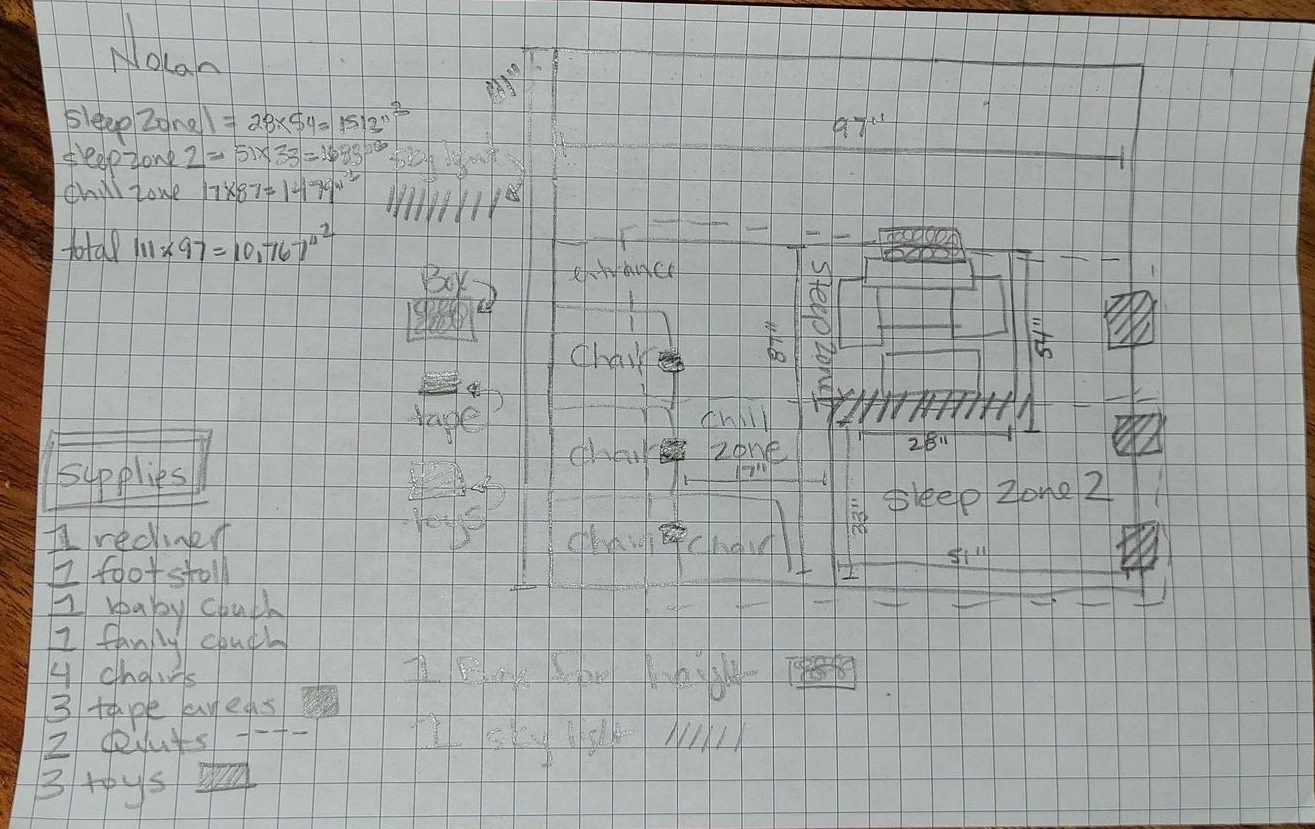 Nolan
Sleep Zone 1 = 28x54=1512"²
sleep zone 2 = 51x33=1683"²
chill zone 17x87=1479"²
total 111x97=10,767"²
sky light
111"
97"
Box
tape
toys
entrance
chair
chair
chair chair
Sleep Zone 1
87"
54"
28"
chill
zone
17"
sleep zone 2
33"
51"
Supplies
1 recliner
1 footstoll
1 baby couch
1 family couch
4 chairs
3 tape areas
2 Quilts ----
3 toys
1 Box for height
1 sky light